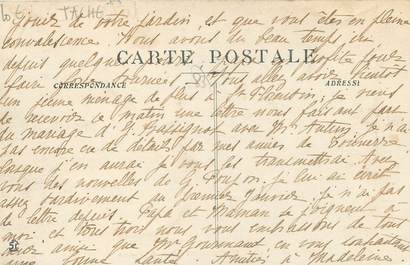 jouir de votre jardin et que vous êtes en pleine
convalescence. Nous avons un beau temps
depuis quelques
CARTE POSTALE
profite pour
faire
CORRESPONDANCE
Vous allez avoir bientôt
ADRESSE
un jeune ménage de plus à St Florentin, je viens
de recevoir ce matin une lettre nous faisant part
du mariage d' avec Mr je n'ai
pas encore eu de détails par mes amies de Tonnerre
lorsque j'en aurai je vous les transmettrai. Avez
vous des nouvelles de G. je lui ai écrit
assez tardivement au premier Janvier, je n'ai pas
de lettre depuis. Papa et Maman se joignent à
moi et tous trois nous vous embrassons de tout
cœur ainsi que Mr en vous souhaitant
une bonne santé. Amitiés à Madeleine.